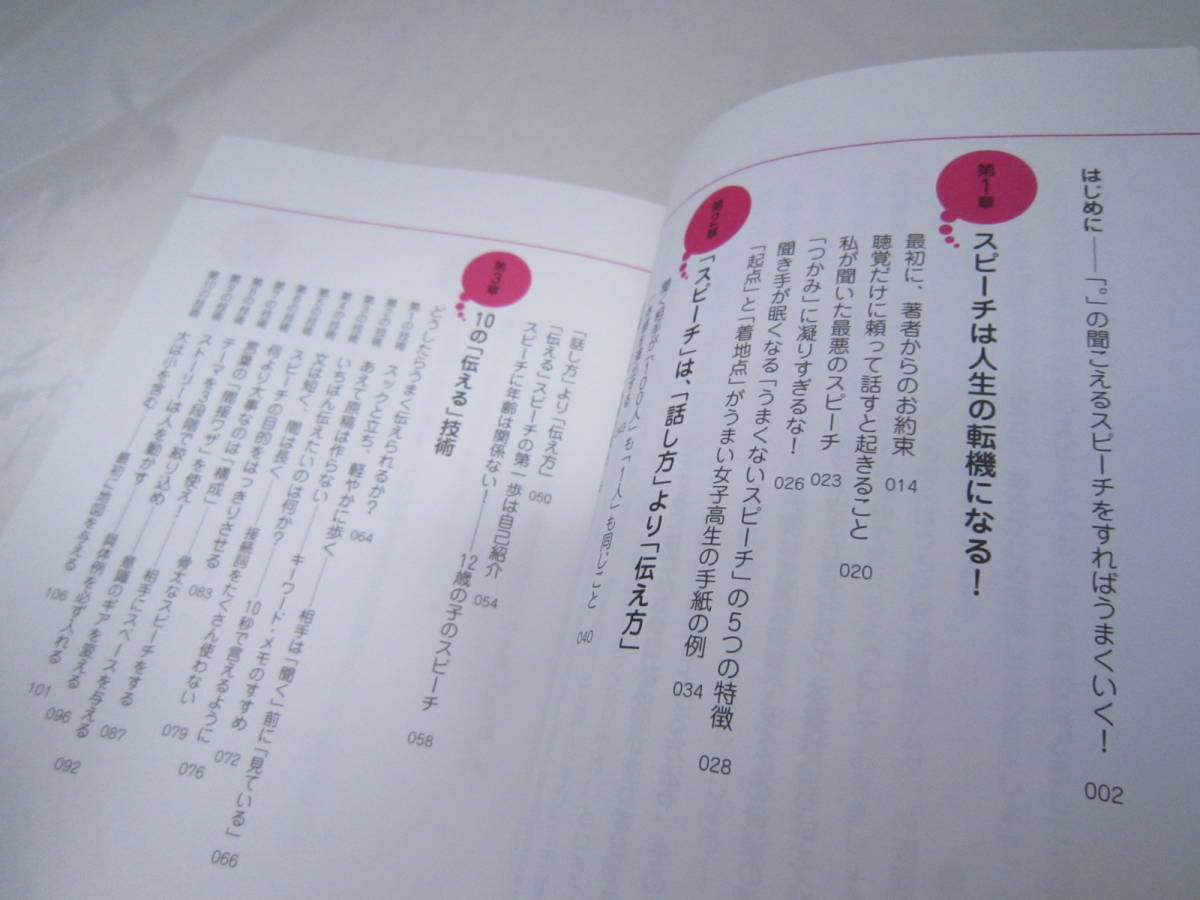 はじめに——「。」の聞こえるスピーチをすればうまくいく！ 002
第1章
スピーチは人生の転機になる！
最初に、著者からのお約束 014
聴覚だけに頼って話すと起きること 020
私が聞いた最悪のスピーチ 023
「つかみ」に凝りすぎるな！ 026
聞き手が眠くなる「うまくないスピーチ」の5つの特徴 028
「起点」と「着地点」がうまい女子高生の手紙の例 034
第2章
「スピーチ」は、「話し方」より「伝え方」
「100人」も「1人」も同じこと 040
「話し方」より「伝え方」 050
「伝える」スピーチの第一歩は自己紹介 054
スピーチに年齢は関係ない！——12歳の子のスピーチ 058
第3章
10の「伝える」技術
どうしたらうまく伝えられるか？ 064
スックと立ち、軽やかに歩く——相手は「聞く」前に「見ている」 066
あえて原稿は作らない——キーワード・メモのすすめ 072
いちばん伝えたいのは何か？——10秒で言えるように 076
文は短く、間は長く——接続詞をたくさん使わない 079
スピーチの目的をはっきりさせる 083
何より大事なのは「構成」——骨太なスピーチをする 087
言葉の「間接ワザ」を使え！——相手にスペースを与える 092
テーマを3段階で絞り込め——意識のギアを変える 096
ストーリーは人を動かす——具体例を必ず入れる 101
大は小を含む——最初に地図を与える 106